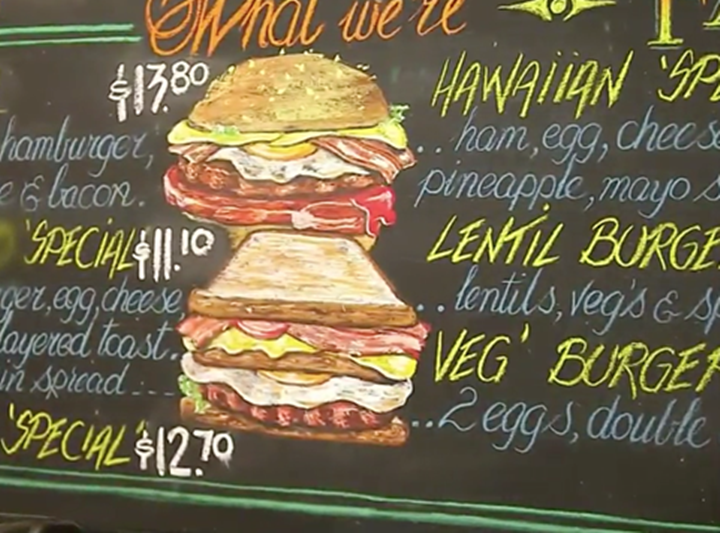 What we're
$13.80
hamburger,
e & bacon.
'SPECIAL' $11.10
ger, egg, cheese
layered toast.
in spread...
'SPECIAL' $12.70
HAWAIIAN 'SP
.. ham, egg, chees
pineapple, mayo s
LENTIL BURGE
.. lentils, veg's & sp
VEG' BURGER
..2 eggs, double